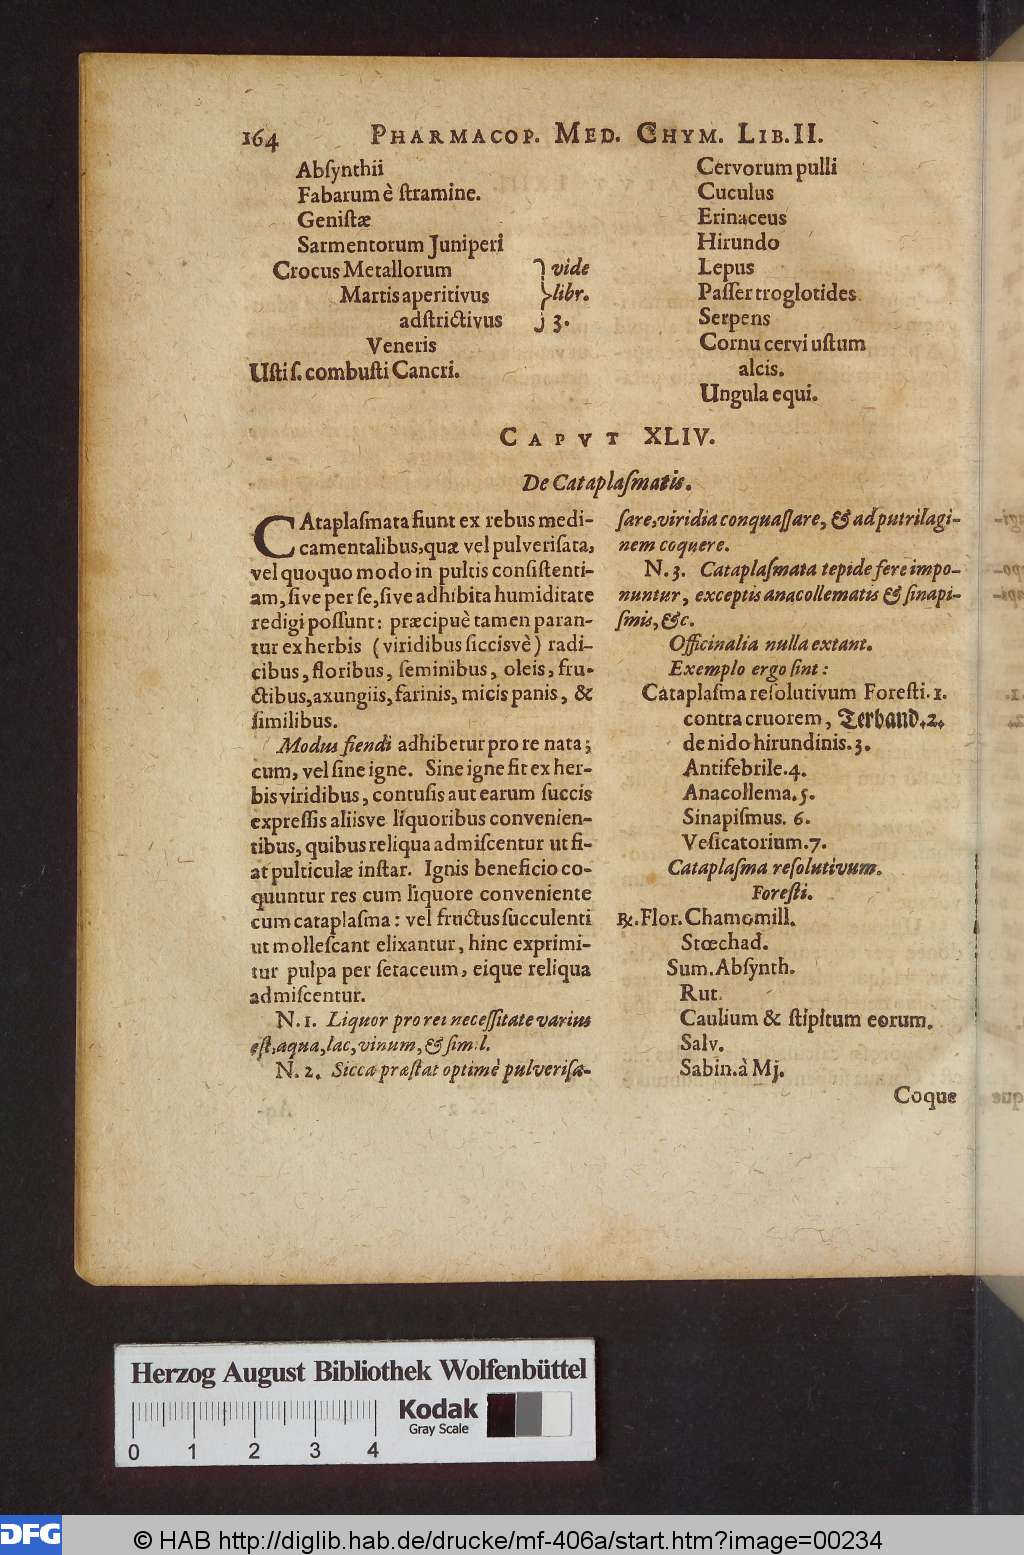 164 PHARMACOP. MED. CHYM. LIB. II.
Abſynthii
Fabarum è ſtramine.
Geniſtæ
Sarmentorum Juniperi
Crocus Metallorum } vide
Martis aperitivus } libr.
adſtrictivus } 3.
Veneris
Uſti ſ. combuſti Cancri.
Cervorum pulli
Cuculus
Erinaceus
Hirundo
Lepus
Paſſer troglotides
Serpens
Cornu cervi uſtum
alcis.
Ungula equi.
CAPVT XLIV.
De Cataplaſmatis.
CAtaplaſmata fiunt ex rebus medi-
camentalibus, quæ vel pulveriſata,
vel quoquo modo in pultis conſiſtenti-
am, ſive per ſe, ſive adhibita humiditate
redigi poſſunt: præcipuè tamen paran-
tur ex herbis (viridibus ſiccisvè) radi-
cibus, floribus, ſeminibus, oleis, fru-
ctibus, axungiis, farinis, micis panis, &
ſimilibus.
Modus fiendi adhibetur pro re nata;
cum, vel ſine igne. Sine igne fit ex her-
bis viridibus, contuſis aut earum ſuccis
expreſſis aliisve liquoribus convenien-
tibus, quibus reliqua admiſcentur ut fi-
at pulticulæ inſtar. Ignis beneficio co-
quuntur res cum liquore conveniente
cum cataplaſma: vel fructus ſucculenti
ut molleſcant elixantur, hinc exprimi-
tur pulpa per ſetaceum, eique reliqua
admiſcentur.
N. 1. Liquor pro rei neceſſitate varius
eſt, aqua, lac, vinum, & ſimil.
N. 2. Sicca præſtat optimè pulveriſa-
ſare, viridia conquaſſare, & ad putrilagi-
nem coquere.
N. 3. Cataplaſmata tepide fere impo-
nuntur, exceptis anacollematis & ſinapi-
ſmis, &c.
Officinalia nulla extant.
Exemplo ergo ſint:
Cataplaſma reſolutivum Foreſti. 1.
contra cruorem, Terband. 2.
de nido hirundinis. 3.
Antifebrile. 4.
Anacollema. 5.
Sinapiſmus. 6.
Veſicatorium. 7.
Cataplaſma reſolutivum.
Foreſti.
℞. Flor. Chamomill.
Stœchad.
Sum. Abſynth.
Rut.
Caulium & ſtipitum eorum.
Salv.
Sabin. à Mj.
Coque
Herzog August Bibliothek Wolfenbüttel
Kodak
Gray Scale
0 1 2 3 4
DFG
© HAB http://diglib.hab.de/drucke/mf-406a/start.htm?image=00234